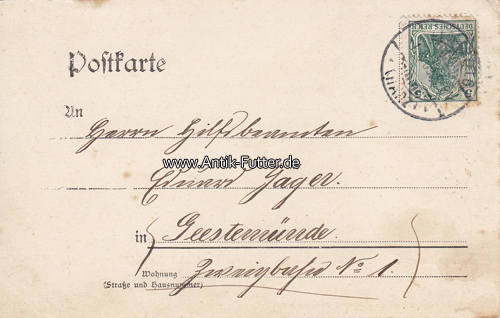 Postkarte
DEUTSCHES REICH
An
Herrn Hilfsbeamten
www.Antik-Futter.de
Eduard Jager.
in Geestemünde.
Wohnung
(Straße und Hausnummer)
Zweigbahn No 1.